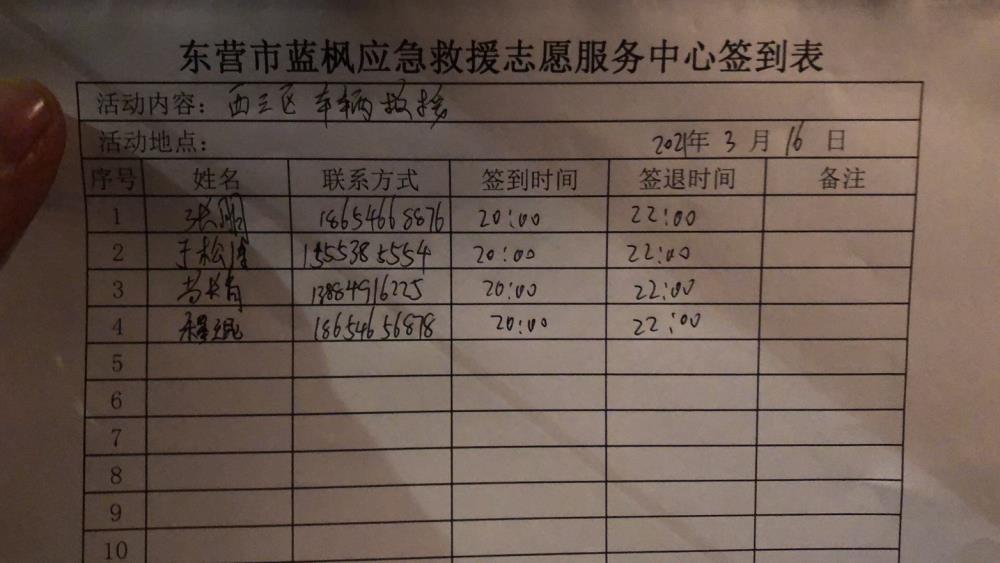 东营市蓝枫应急救援志愿服务中心签到表
活动内容：西三区车辆救援
活动地点： 2021年 3 月 16 日
序号 姓名 联系方式 签到时间 签退时间 备注
1 张鹏 18654668876 20:00 22:00
2 于松 1555385554 20:00 22:00
3 尚长有 13884916225 20:00 22:00
4 程琨 18654656878 20:00 22:00
5
6
7
8
9
10